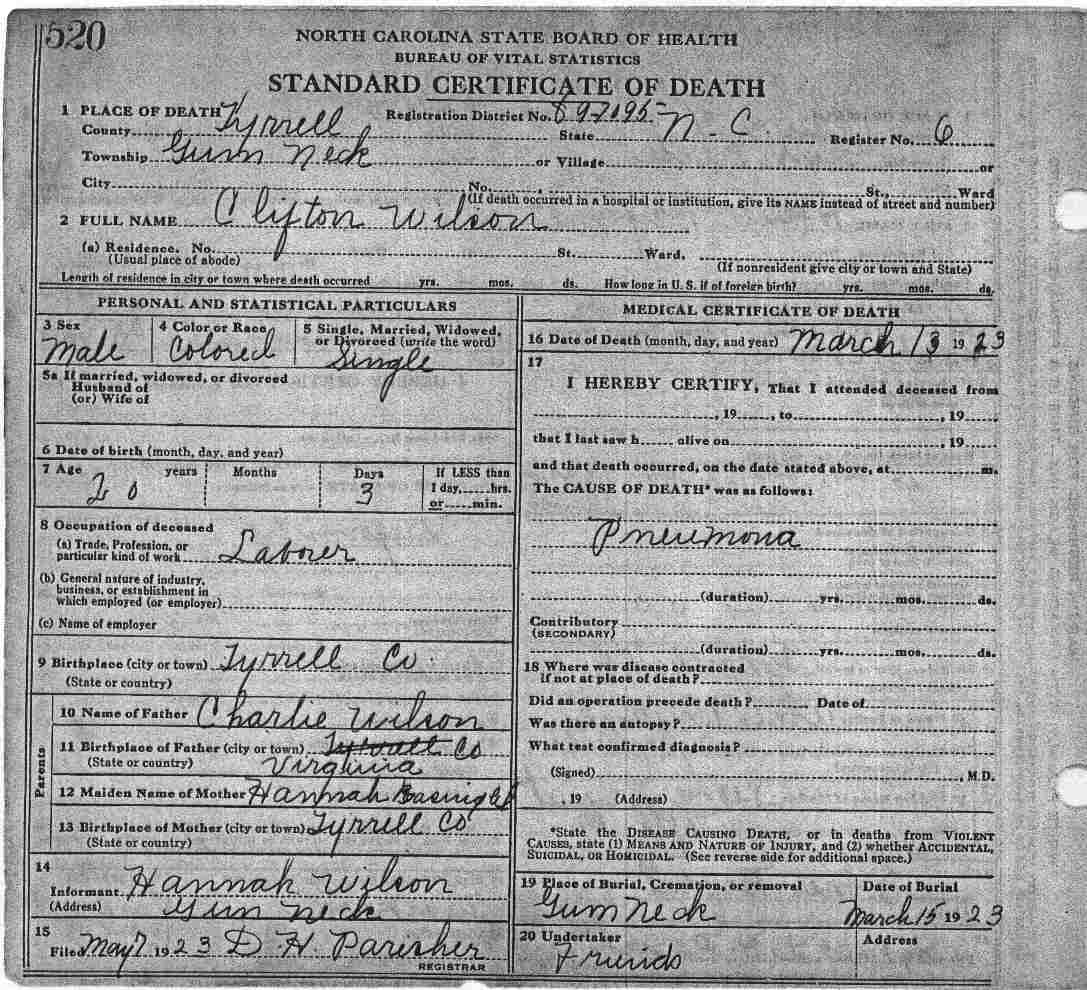 520
NORTH CAROLINA STATE BOARD OF HEALTH
BUREAU OF VITAL STATISTICS
STANDARD CERTIFICATE OF DEATH
1 PLACE OF DEATH Registration District No. 897095-
County Tyrrell State N.C. Register No. 6
Township Gum Neck or Village or
City No. , St., Ward
(If death occurred in a hospital or institution, give its NAME instead of street and number)
2 FULL NAME Clifton Wilson
(a) Residence. No. St. Ward.
(Usual place of abode) (If nonresident give city or town and State)
Length of residence in city or town where death occurred yrs. mos. ds. How long in U. S. if of foreign birth? yrs. mos. ds.
PERSONAL AND STATISTICAL PARTICULARS
3 Sex 4 Color or Race 5 Single, Married, Widowed,
or Divorced (write the word)
Male Colored Single
5a If married, widowed, or divorced
Husband of
(or) Wife of
6 Date of birth (month, day, and year)
7 Age years Months Days If LESS than
20 3 1 day, hrs.
or min.
8 Occupation of deceased
(a) Trade, Profession, or
particular kind of work Laborer
(b) General nature of industry,
business, or establishment in
which employed (or employer)
(c) Name of employer
9 Birthplace (city or town) Tyrrell Co.
(State or country)
Parents
10 Name of Father Charlie Wilson
11 Birthplace of Father (city or town) Tyrrell Co
(State or country) Virginia
12 Maiden Name of Mother Hannah
13 Birthplace of Mother (city or town) Tyrrell Co
(State or country)
14
Informant Hannah Wilson
(Address) Gum Neck
15
Filed May 7 1923 D H Parisher
REGISTRAR
MEDICAL CERTIFICATE OF DEATH
16 Date of Death (month, day, and year) March 13 1923
17
I HEREBY CERTIFY, That I attended deceased from
, 19 , to , 19
that I last saw h alive on , 19
and that death occurred, on the date stated above, at m.
The CAUSE OF DEATH* was as follows:
Pneumona
(duration) yrs. mos. ds.
Contributory
(SECONDARY)
(duration) yrs. mos. ds.
18 Where was disease contracted
if not at place of death?
Did an operation precede death? Date of
Was there an autopsy?
What test confirmed diagnosis?
(Signed) , M.D.
, 19 (Address)
*State the DISEASE CAUSING DEATH, or in deaths from VIOLENT
CAUSES, state (1) MEANS AND NATURE OF INJURY, and (2) whether ACCIDENTAL,
SUICIDAL, OR HOMICIDAL. (See reverse side for additional space.)
19 Place of Burial, Cremation, or removal Date of Burial
Gum Neck March 15 1923
20 Undertaker Address
Friends